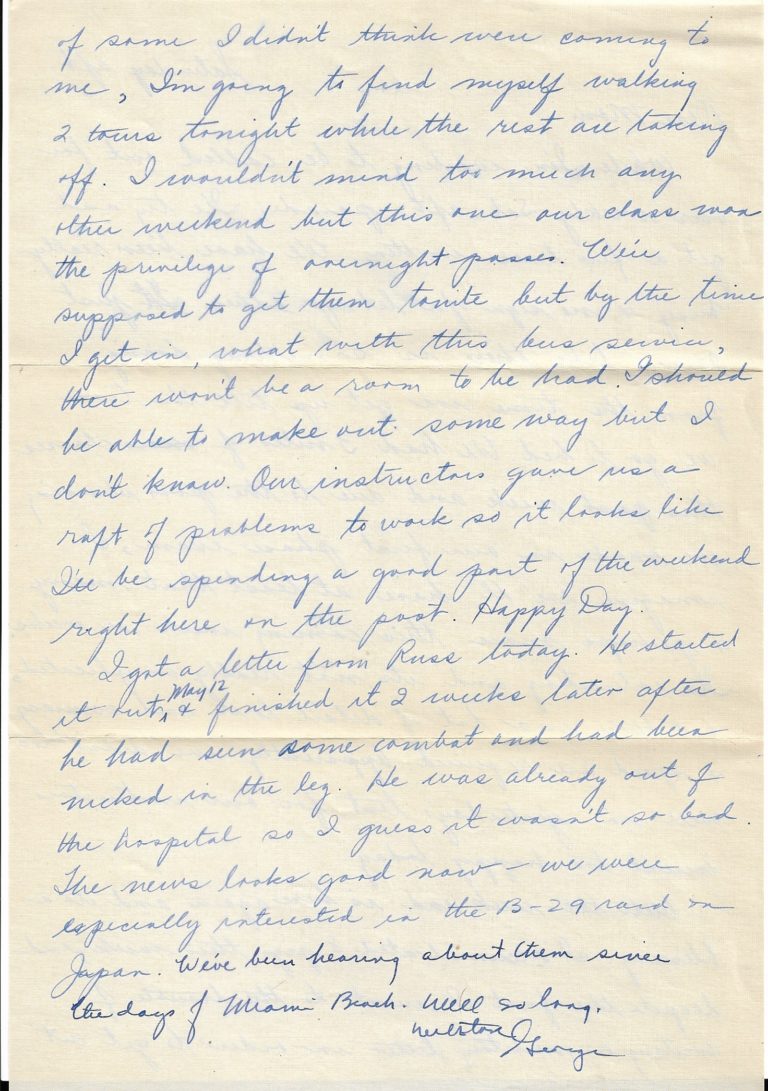 of some I didn't think were coming to
me, I'm going to find myself walking
2 tours tonight while the rest are taking
off. I wouldn't mind too much any
other weekend but this one our class won
the privilege of overnight passes. We're
supposed to get them tonite but by the time
I get in, what with this bus service,
there won't be a room to be had. I should
be able to make out some way but I
don't know. Our instructors gave us a
raft of problems to work so it looks like
I'll be spending a good part of the weekend
right here on the post. Happy Day.
I got a letter from Russ today. He started
it out May 12 & finished it 2 weeks later after
he had seen some combat and had been
nicked in the leg. He was already out of
the hospital so I guess it wasn't so bad.
The news looks good now - we were
especially interested in the B-29 raid on
Japan. We've been hearing about them since
the days of Miami Beach. Well so long.
George